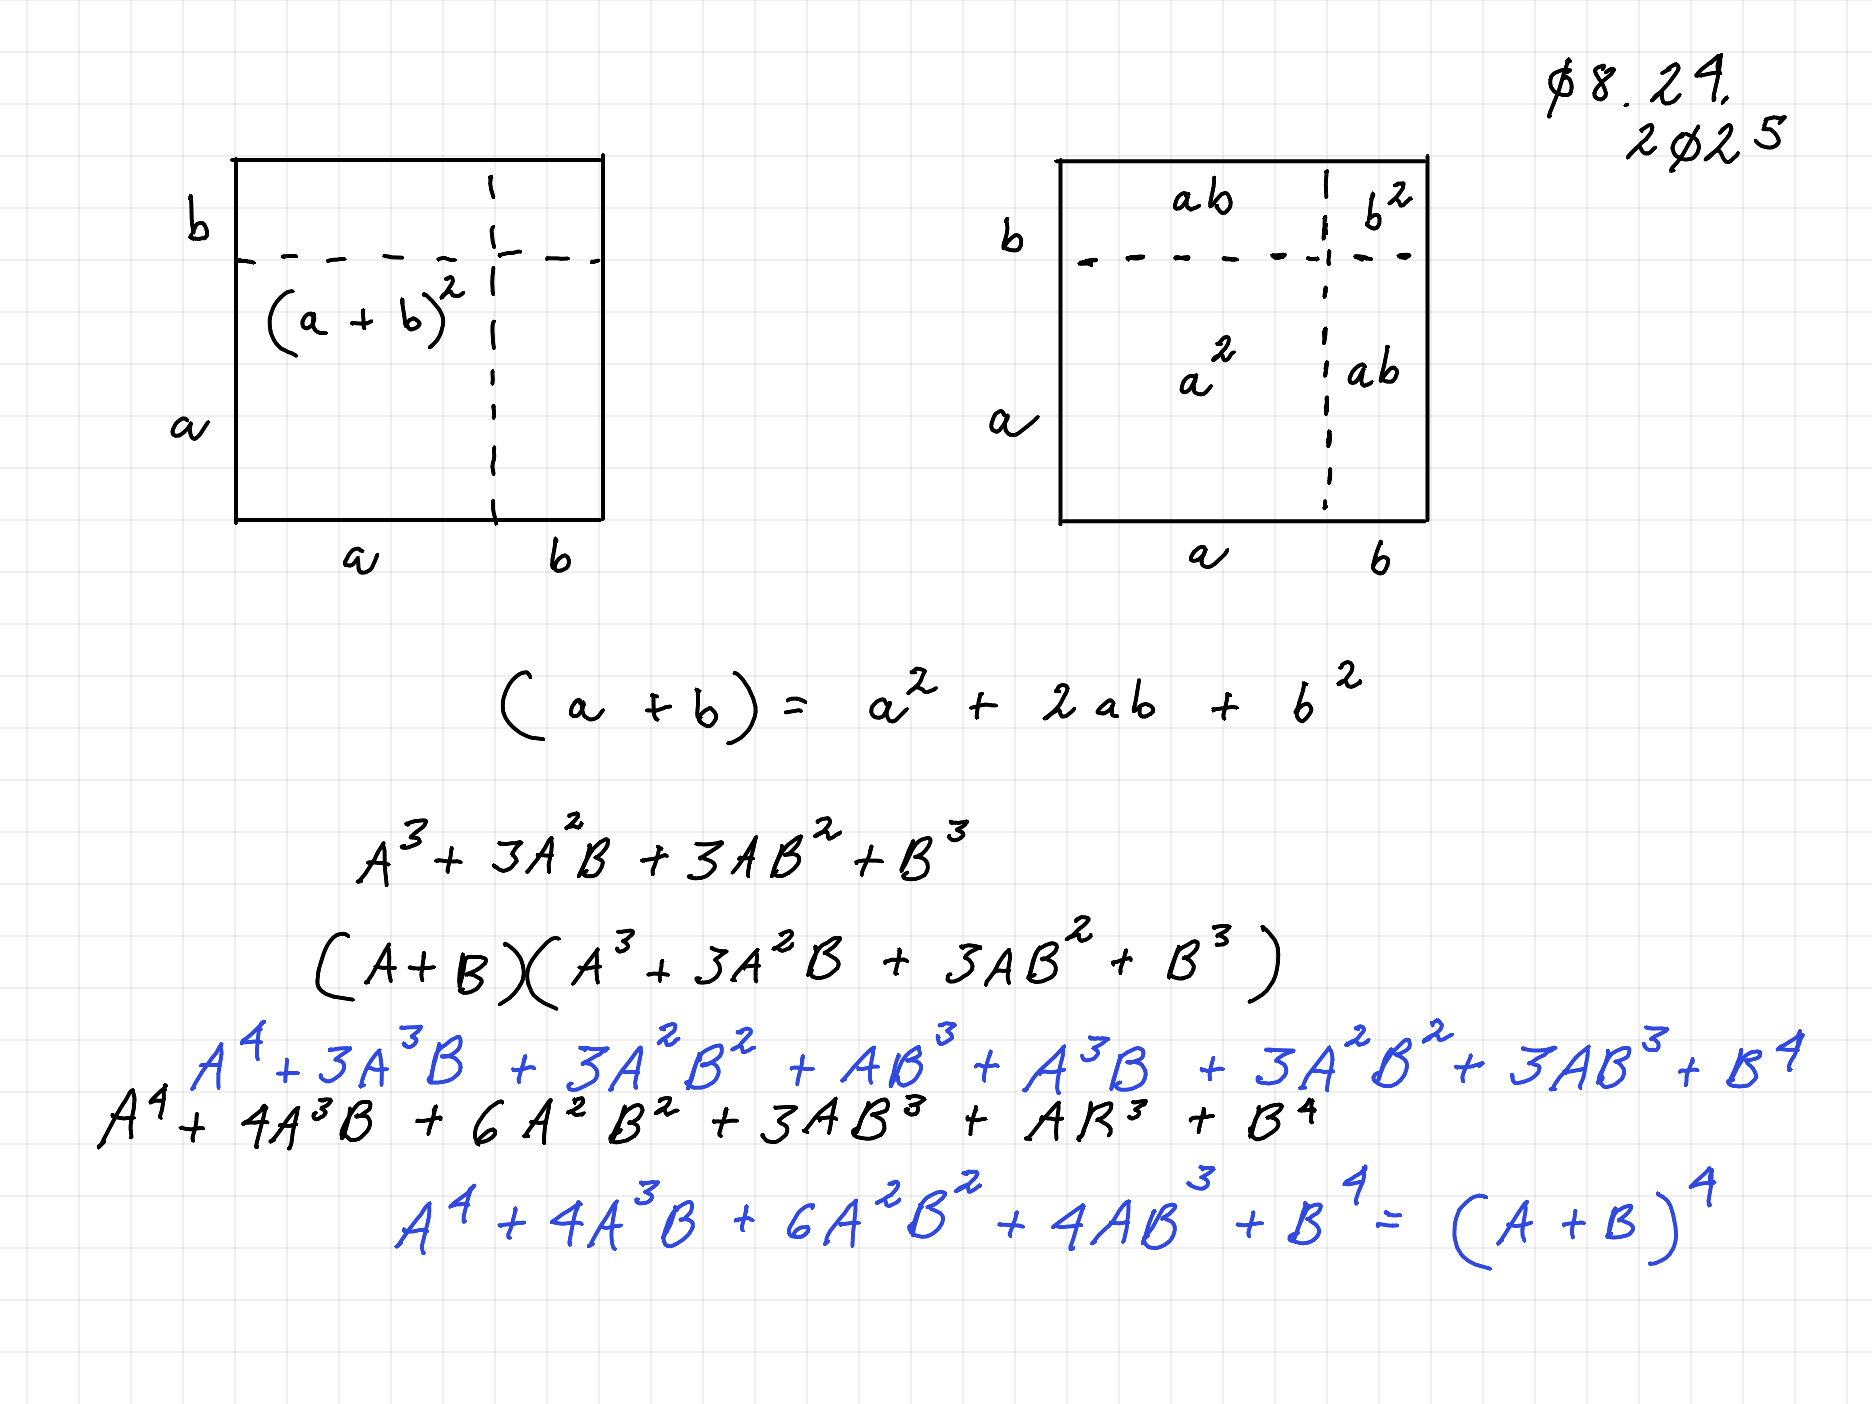 Ø8.24.
2Ø25
b
(a + b)²
a
a b
ab b²
b
a² ab
a
a b
(a + b) = a² + 2ab + b²
A³ + 3A²B + 3AB² + B³
(A+B)(A³ + 3A²B + 3AB² + B³)
A⁴ + 3A³B + 3A²B² + AB³ + A³B + 3A²B² + 3AB³ + B⁴
A⁴ + 4A³B + 6A²B² + 3AB³ + AB³ + B⁴
A⁴ + 4A³B + 6A²B² + 4AB³ + B⁴ = (A + B)⁴